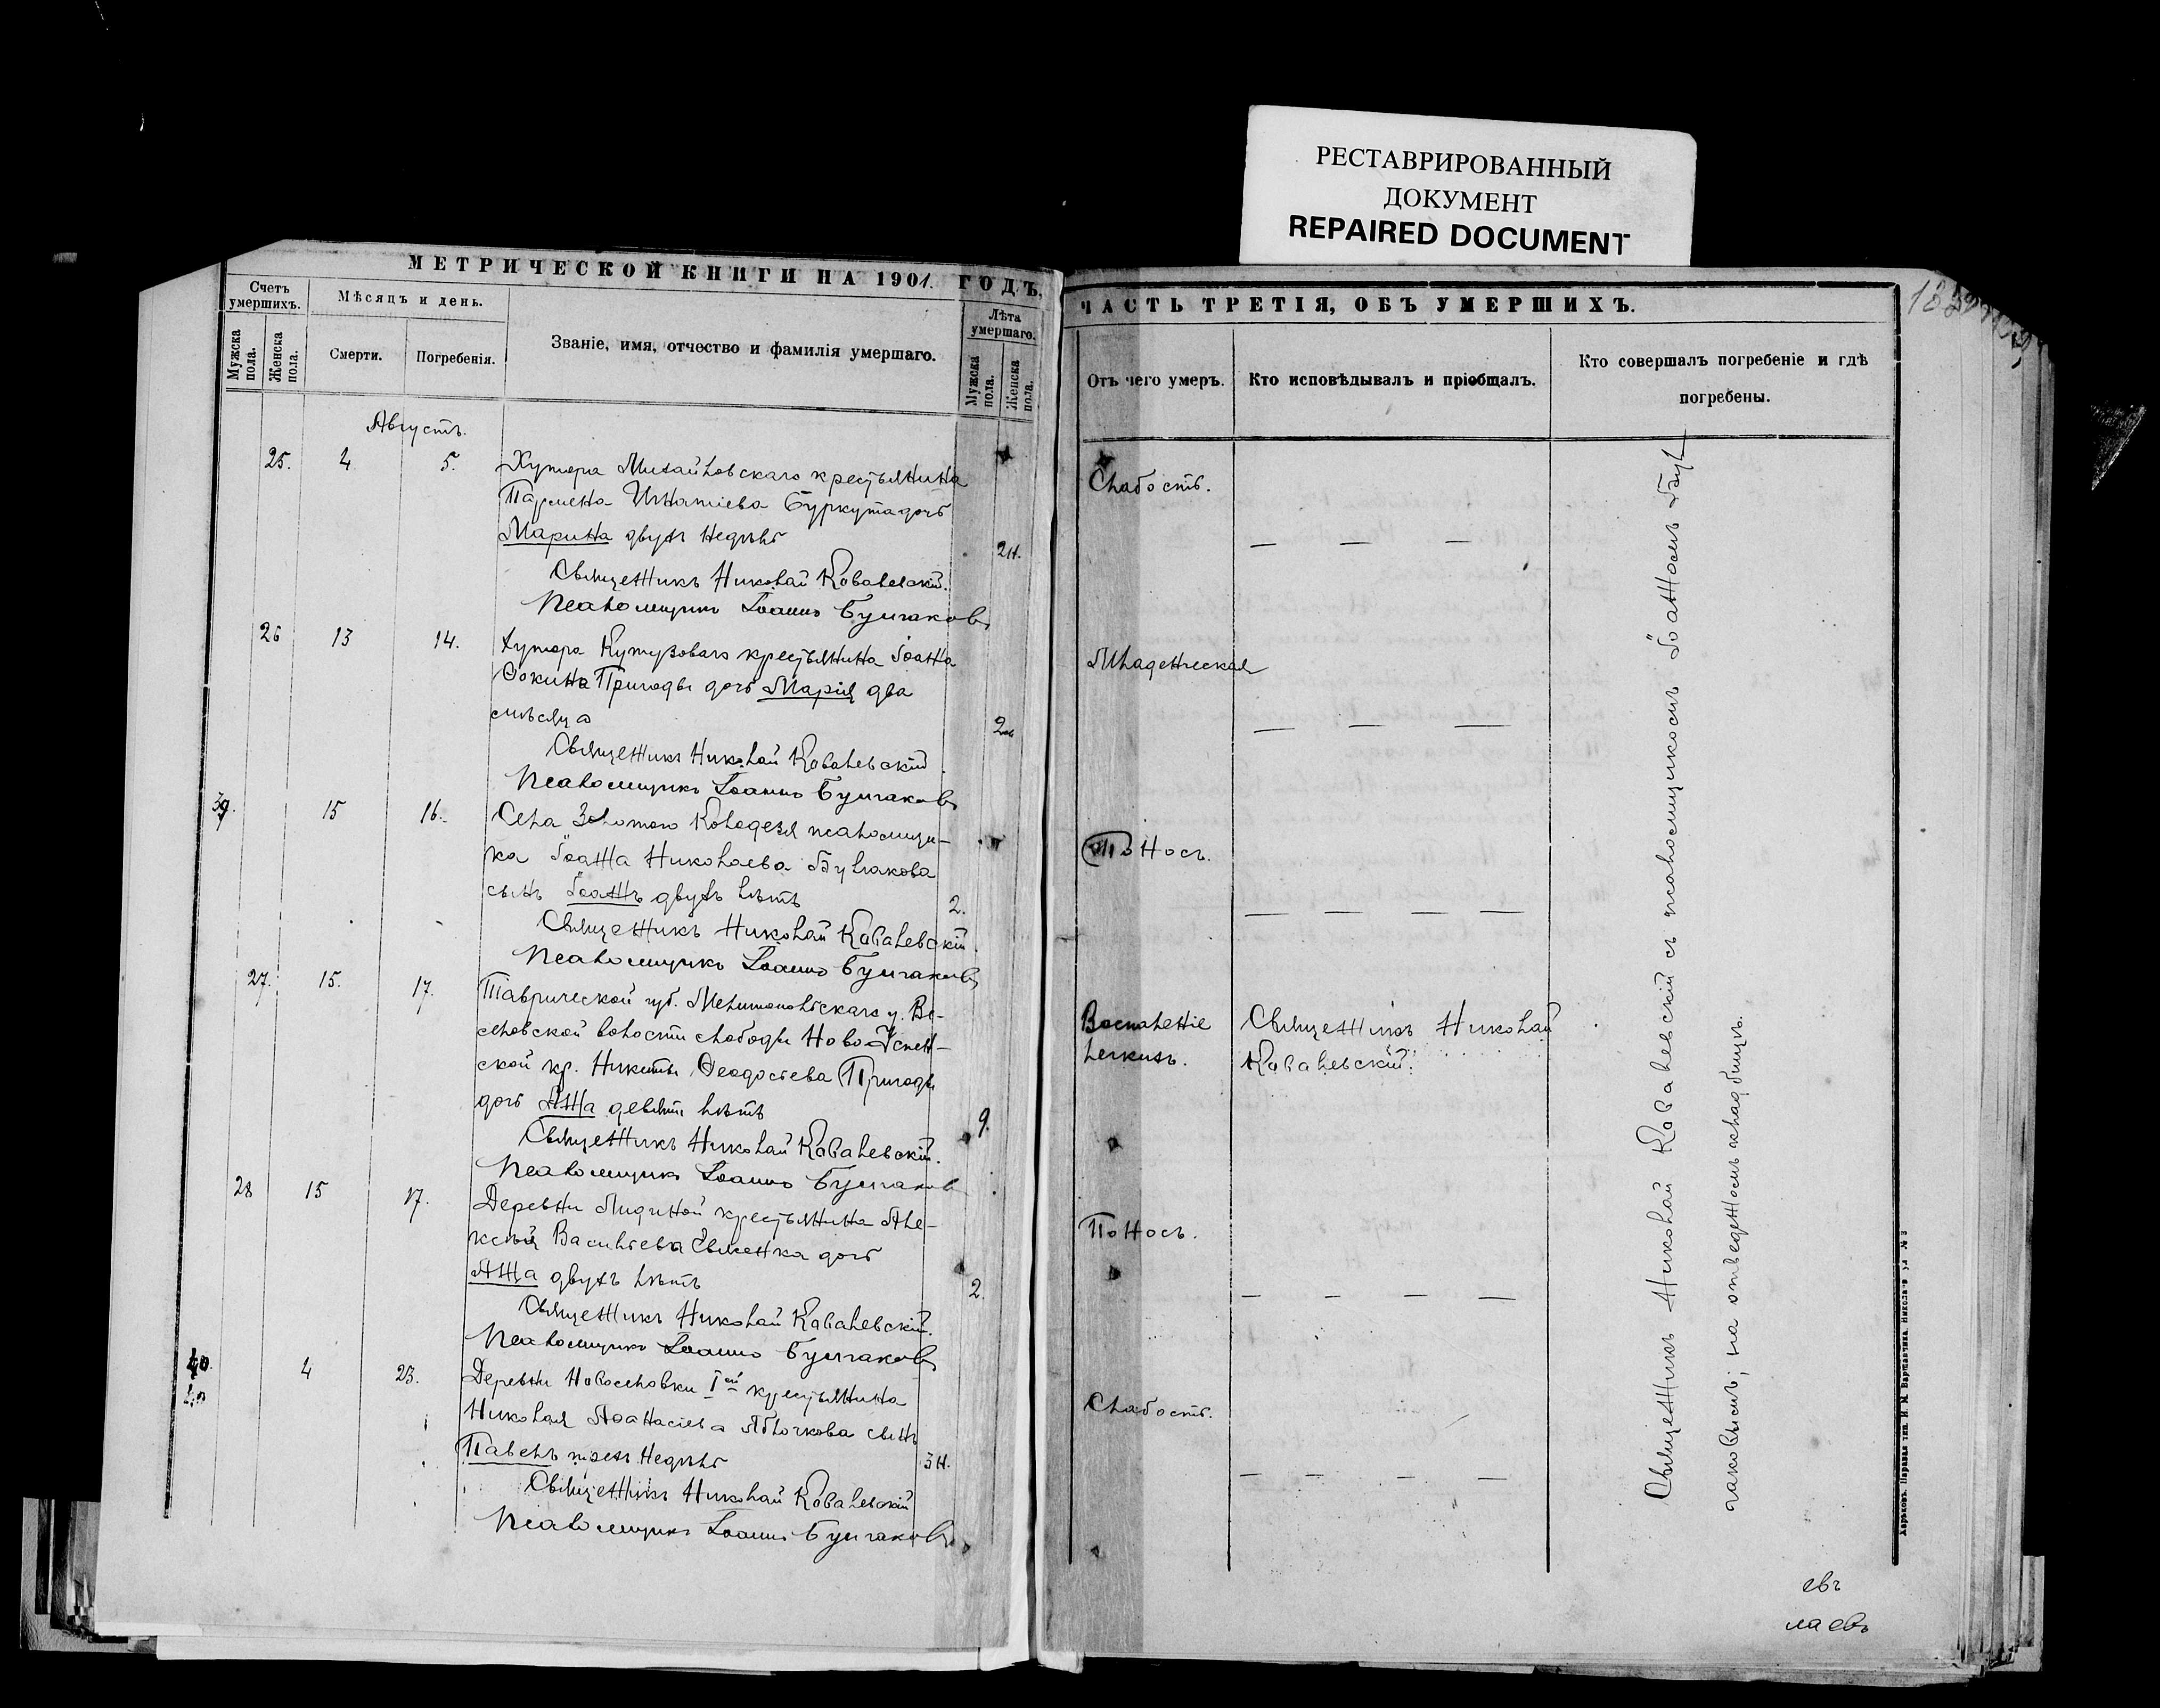 РЕСТАВРИРОВАННЫЙ
ДОКУМЕНТ
REPAIRED DOCUMENT
МЕТРИЧЕСКОЙ КНИГИ НА 1901. ГОДЪ,
Счетъ умершихъ.
Мужска пола.
Женска пола.
Мѣсяцъ и день.
Смерти.
Погребенія.
Званіе, имя, отчество и фамилія умершаго.
Лѣта умершаго.
Мужска пола.
Женска пола.
Августъ.
25. 4 5. Хутора Михайловскаго крестьянина
Пармена Игнатіева Буркута дочь
Марина двухъ недѣль
2 н.
Священникъ Николай Ковалевскій.
Псаломщикъ Іоаннъ Булгаковъ
26 13 14. Хутора Кутузоваго крестьянина Іоанна
Ѳокина Пригоды дочь Марія два
мѣсяца
2м
Священникъ Николай Ковалевскій.
Псаломщикъ Іоаннъ Булгаковъ
39. 15 16. Села Золотого Колодезя псаломщи-
ка Іоанна Николаева Булгакова
сынъ Іоаннъ двухъ лѣтъ
2.
Священникъ Николай Ковалевскій.
Псаломщикъ Іоаннъ Булгаковъ
27. 15. 17. Таврической губ. Мелитопольскаго у. Ве-
селовской волости слободы Ново-Успен-
ской кр. Никиты Ѳеодосіева Пригоды
дочь Анна девяти лѣтъ
9.
Священникъ Николай Ковалевскій.
Псаломщикъ Іоаннъ Булгаковъ
28 15 17. Деревни Лидиной крестьянина Але-
ксѣя Васильева Евменка дочь
Анна двухъ лѣтъ
2.
Священникъ Николай Ковалевскій.
Псаломщикъ Іоаннъ Булгаковъ
40. 4 23. Деревни Новоселовки Iой крестьянина
Николая Аѳанасіева Яблочкова сынъ
Павелъ трехъ недѣль
3 н.
Священникъ Николай Ковалевскій
Псаломщикъ Іоаннъ Булгаковъ
ЧАСТЬ ТРЕТІЯ, ОБЪ УМЕРШИХЪ.
Отъ чего умеръ.
Кто исповѣдывалъ и пріобщалъ.
Кто совершалъ погребеніе и гдѣ
погребены.
Слабость.
— — —
Младенческая
— — —
Поносъ.
— — — —
Воспаленіе Священникъ Николай
легкихъ. Ковалевскій.
Поносъ.
— — — —
Слабость.
— — — —
Священникъ Николай Ковалевскій съ псаломщикомъ Іоанномъ Бул-
гаковымъ; на отведенномъ кладбищѣ.
евъ
лаевъ